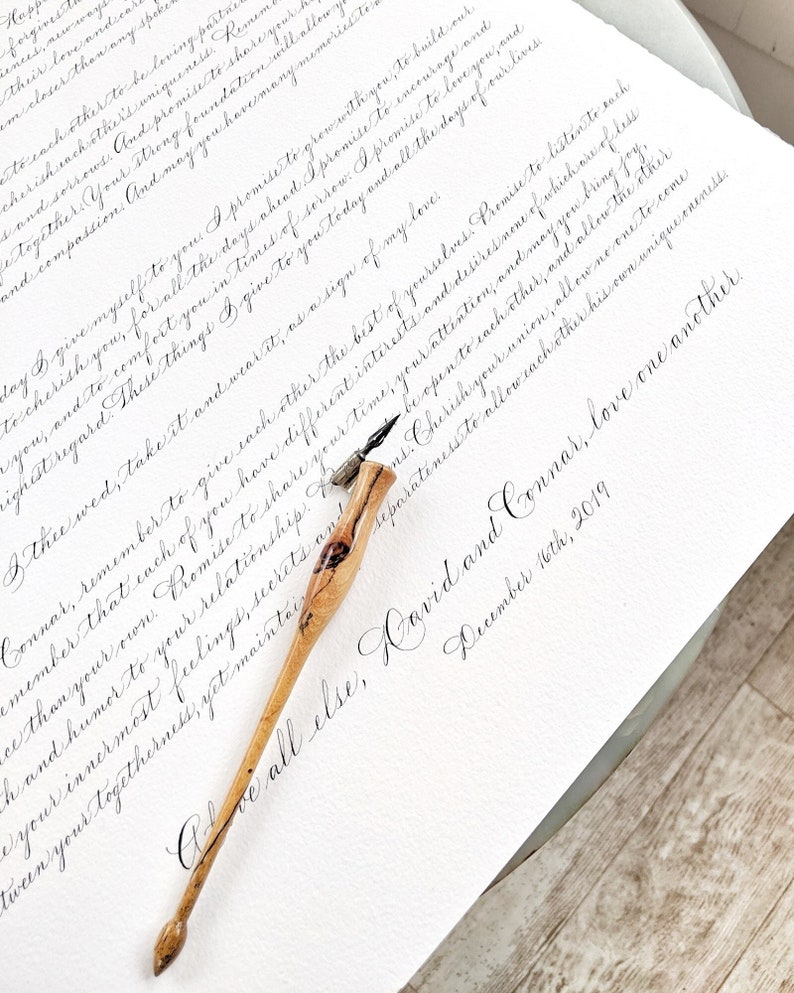 Happ
forgives th
ences, new ways
their love and car
em closer than any spoken
e to each other to be loving partner
cherish each other's uniqueness. Remem
s and sorrows. And promise to share your h
fe together. Your strong foundation will allow yo
and compassion. And may you have many memories to
day I give myself to you. I promise to grow with you, to build our
to cherish you, for all the days ahead. I promise to encourage and
you, and to comfort you in times of sorrow. I promise to love you, and
highest regard. These things I give to you today and all the days of our lives.
I thee wed, take it and wear it, as a sign of my love.
Connar, remember to give each other the best of yourselves. Promise to listen to each
remember that each of you have different interests and desires none of which are of less
ce than your own. Promise to share your time, your attention, and may you bring joy,
h and humor to your relationship. be open to each other, and allow the other
e your innermost feelings, secrets and ns. Cherish your union, allow no one to come
tween your togetherness, yet maintain separateness to allow each other his own unique oneness.
Above all else, David and Connar, love one another.
December 16th, 2019